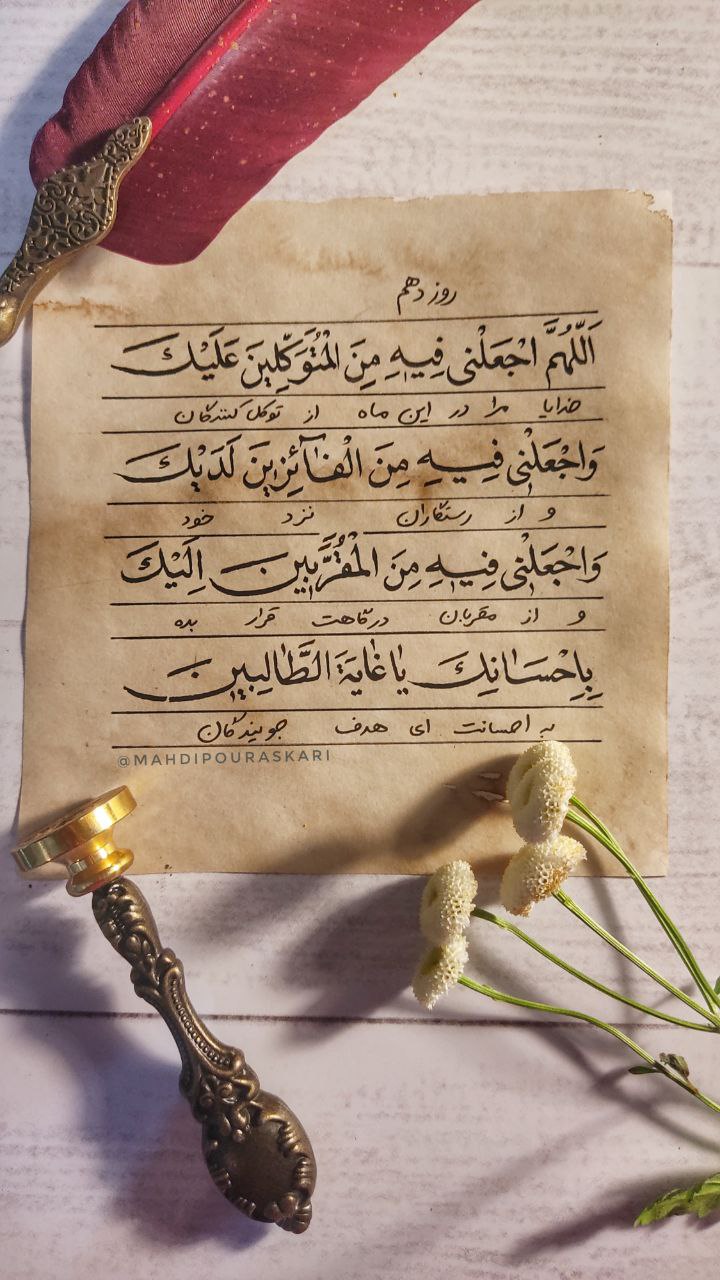 روز دهم
اَللّهُمَّ اجْعَلْنی فِیهِ مِنَ الْمُتَوَکِّلِینَ عَلَیْكَ
خدایا مرا در این ماه از توکل کنندگان
وَاجْعَلْنی فِیهِ مِنَ الْفآئِزِینَ لَدَیْكَ
و از رستگاران نزد خود
وَاجْعَلْنی فِیهِ مِنَ الْمُقَرَّبینَ اِلَیْكَ
و از مقربان درگاهت قرار بده
بِاِحْسَانِكَ یا غایَةَ الطَّالِبینَ
به احسانت ای هدف جویندگان
@MAHDIPOURASKARI